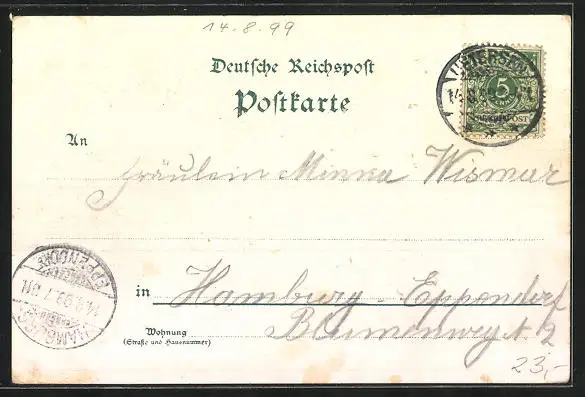 14.8.99
Deutsche Reichspost
Postkarte
UETERSEN
5
An
Fräulein Minna Wismar
EPPENDORF
14.8.99
HAMBURG
in Hamburg-Eppendorf
Wohnung
(Straße und Hausnummer)
Blumenweg 2
23,-